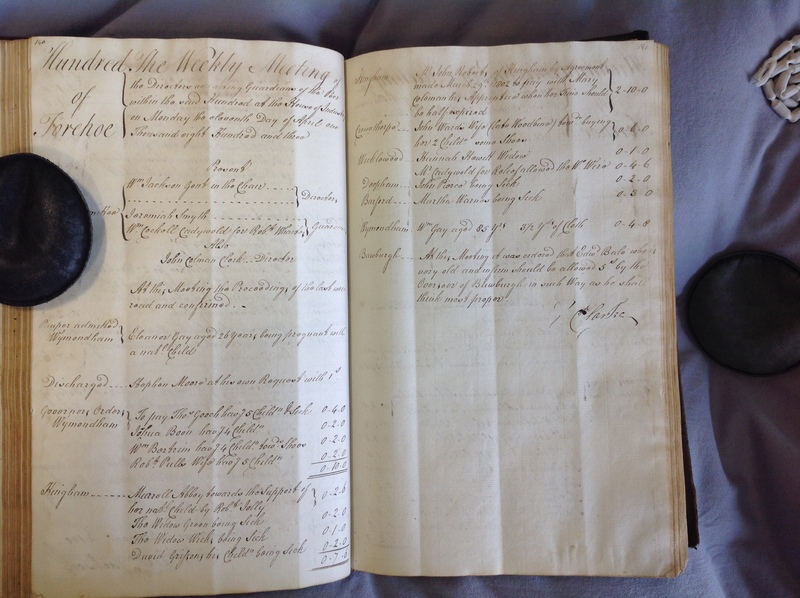 Hundred
of
Forehoe
The Weekly Meeting of
the Directors and acting Guardians of the Poor
within the said Hundred at the House of Industry
on Monday the eleventh Day of April one
Thousand eight Hundred and three
Present
Wm Jackson Gent in the Chair
Director
Jeremiah Smyth
Wm Cockell Cadywold for Robt
Also
John Colman Clerk Director
At this Meeting the Proceedings of the last were
read and confirmed
Pauper admitted
Wymondham
Eleanor Gay aged 26 Years being pregnant with
a natl Child
Discharged Stephen Moore at his own Request with 1s
Governor Orders
Wymondham
To pay Thos Gooch has 5 Childn & Sick 0-4-0
Joshua Boon has 4 Childn 0-2-0
Wm Bertrem has 4 Childn towds Shoes 0-2-0
Robt Pulls Wife has 5 Childn 0-2-0
0-10-0
Hingham Murrell Abbey towards the Support of
her natl Child by Robt Jolly 0-2-6
The Widow Green being Sick 0-2-0
The Widow Wick being Sick 0-1-0
David Childn being Sick 0-2-0
0-7-6
Hingham Mr John Roberts of Hingham by Agreement
made March 29th 1802 to pay with Mary
Coleman his Apprentice when her Time should
be half expired 2-10-0
John Ward Wife (late Woodbine) towds buying
her 2 Childn some Shoes 0-6-0
Wicklewood Hannah Howell Widow 0-1-0
Mr Cadywold for Relief allowed the Wo Were 0-4-6
Deopham John Pearce being Sick 0-2-0
Barford Martha Warnes being Sick 0-3-0
Wymondham Wm Gay aged 85 Yrs 3½ Yds of Cloth 0-4-8
Bawburgh At this Meeting it was ordered that Edwd Bale who is
very old and infirm should be allowed 5s by the
Overseer of Bawburgh in such Way as he shall
think most proper